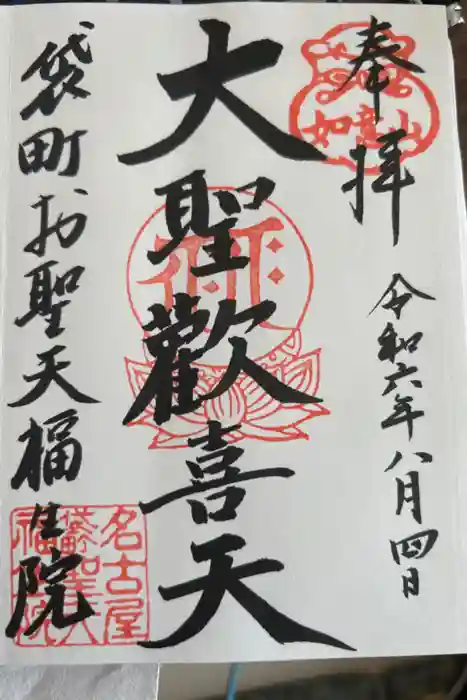 奉拝
令和六年八月四日
大聖歡喜天
袋町お聖天福生院
如意山
名古屋
袋町聖天
福生院